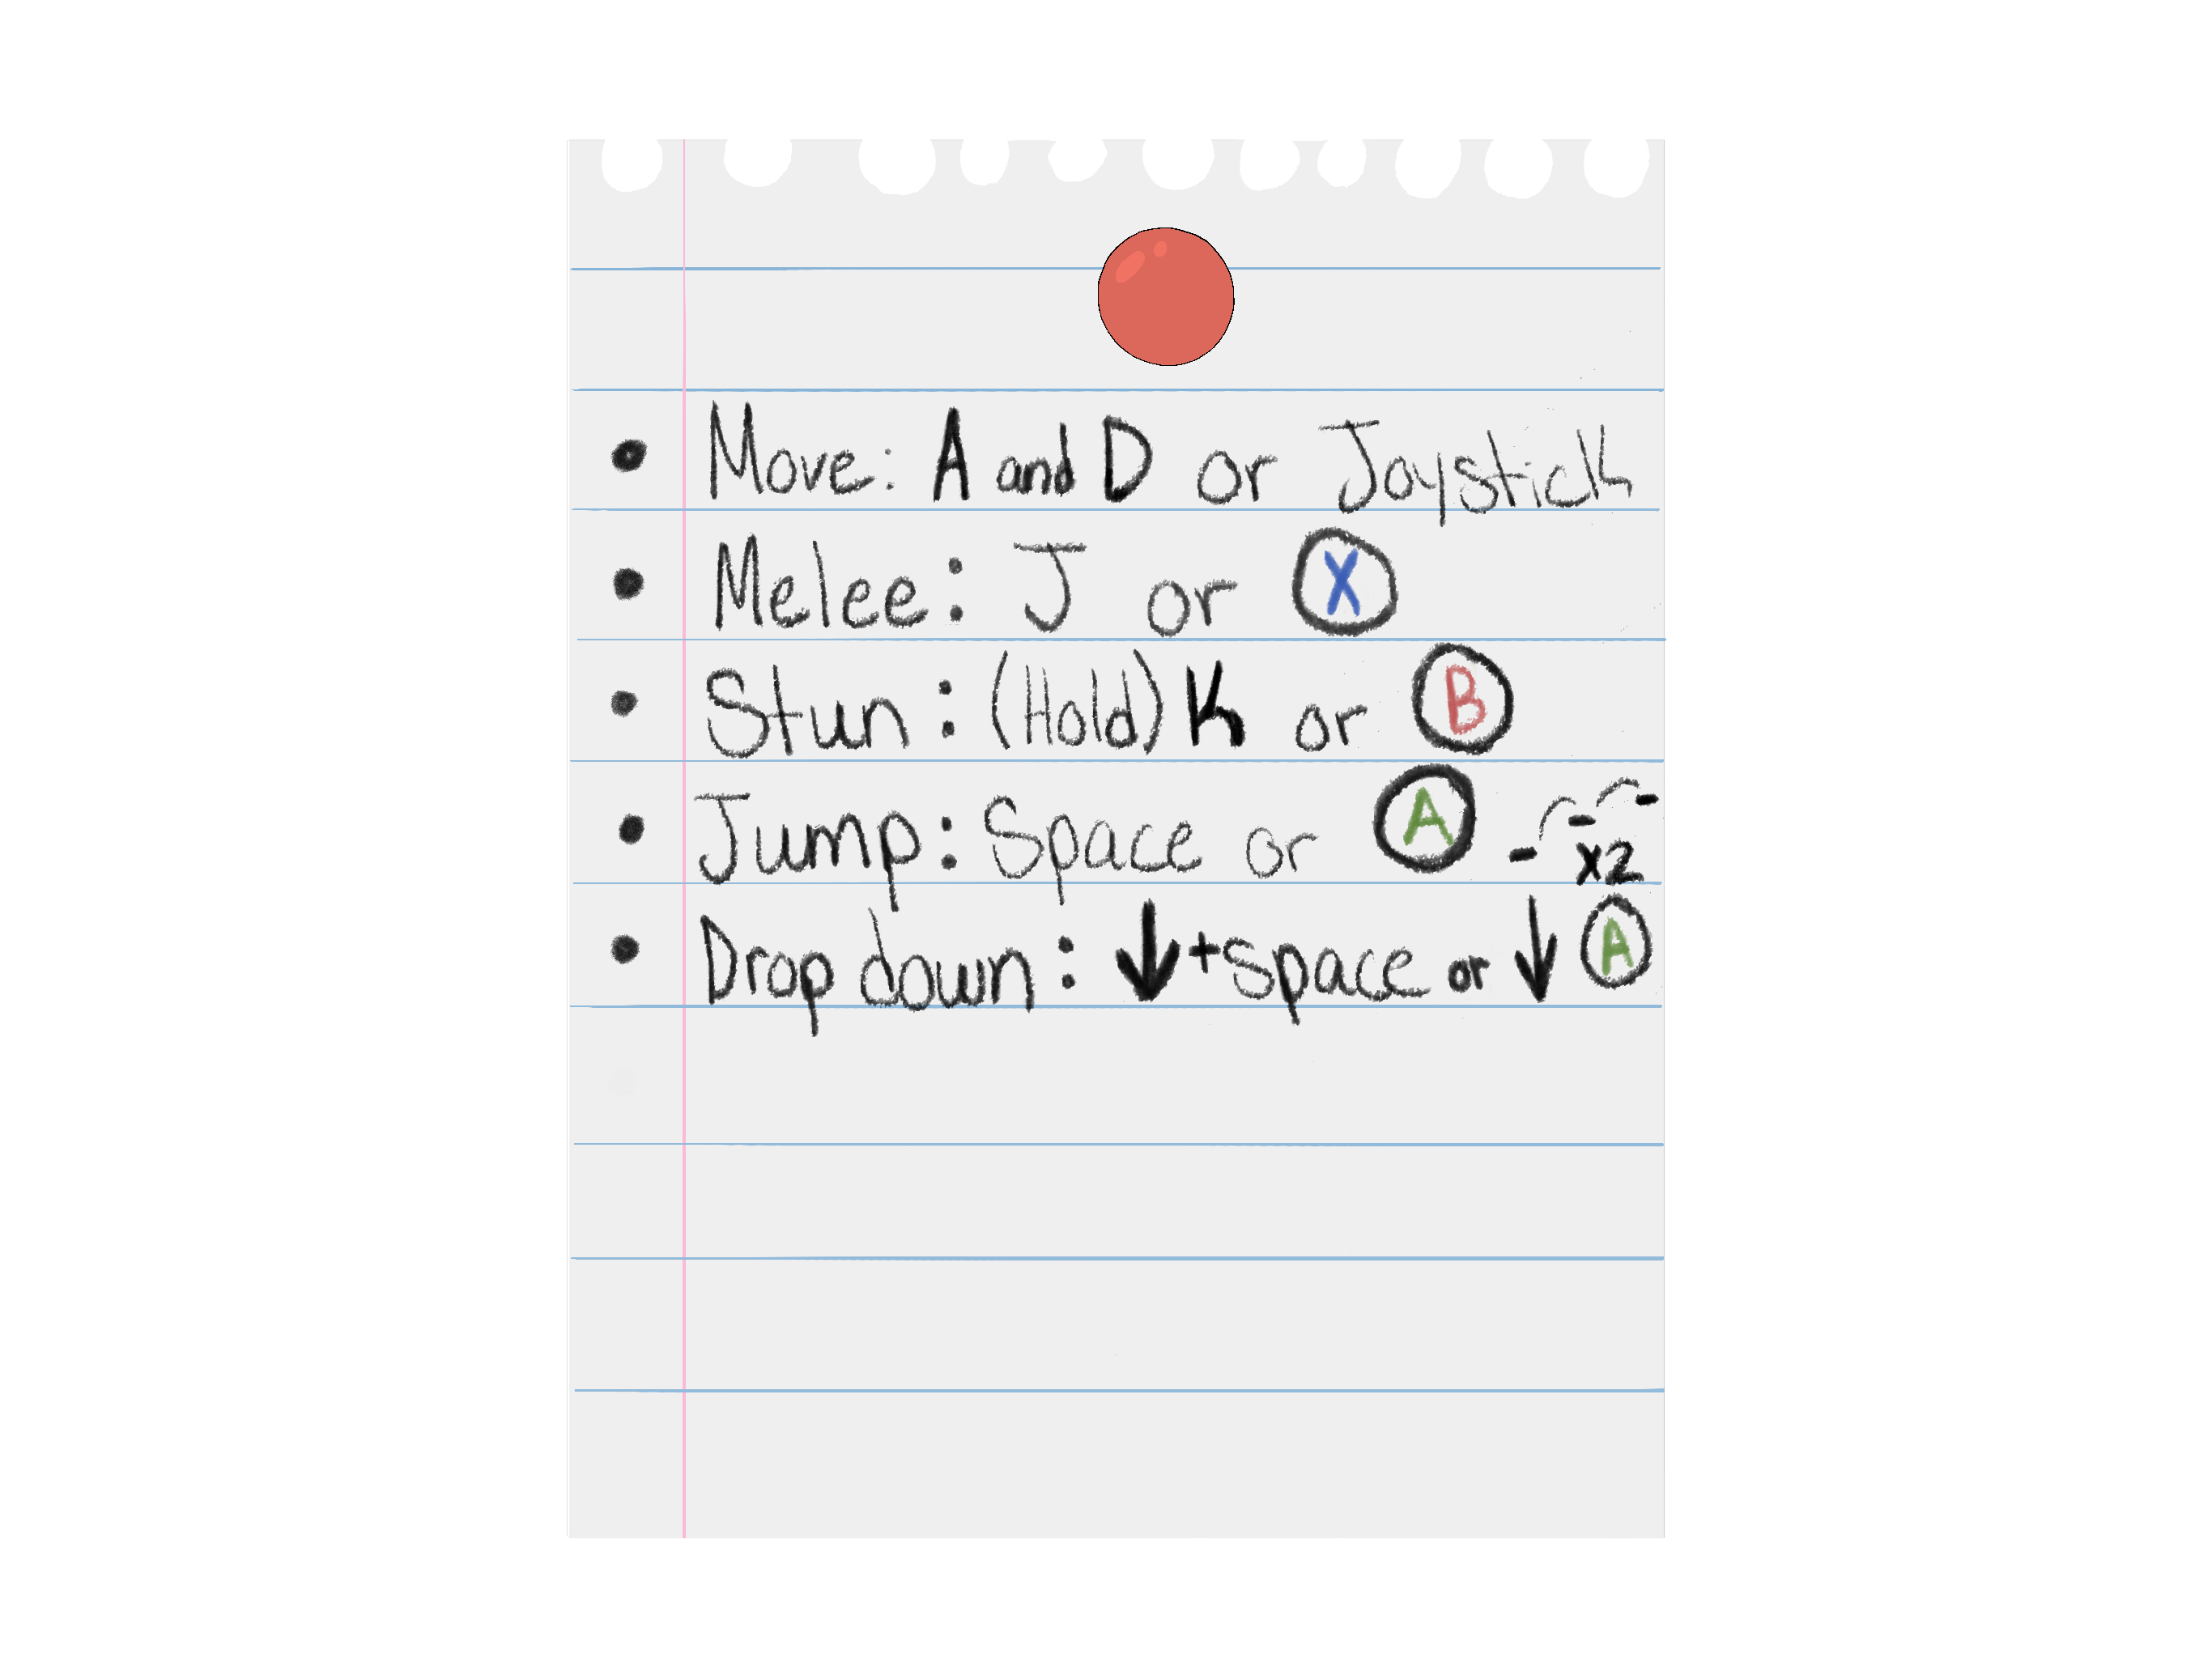 • Move: A and D or Joystick
• Melee: J or X
• Stun: (Hold) K or B
• Jump: Space or A x2
• Drop down: ↓ + Space or ↓ A